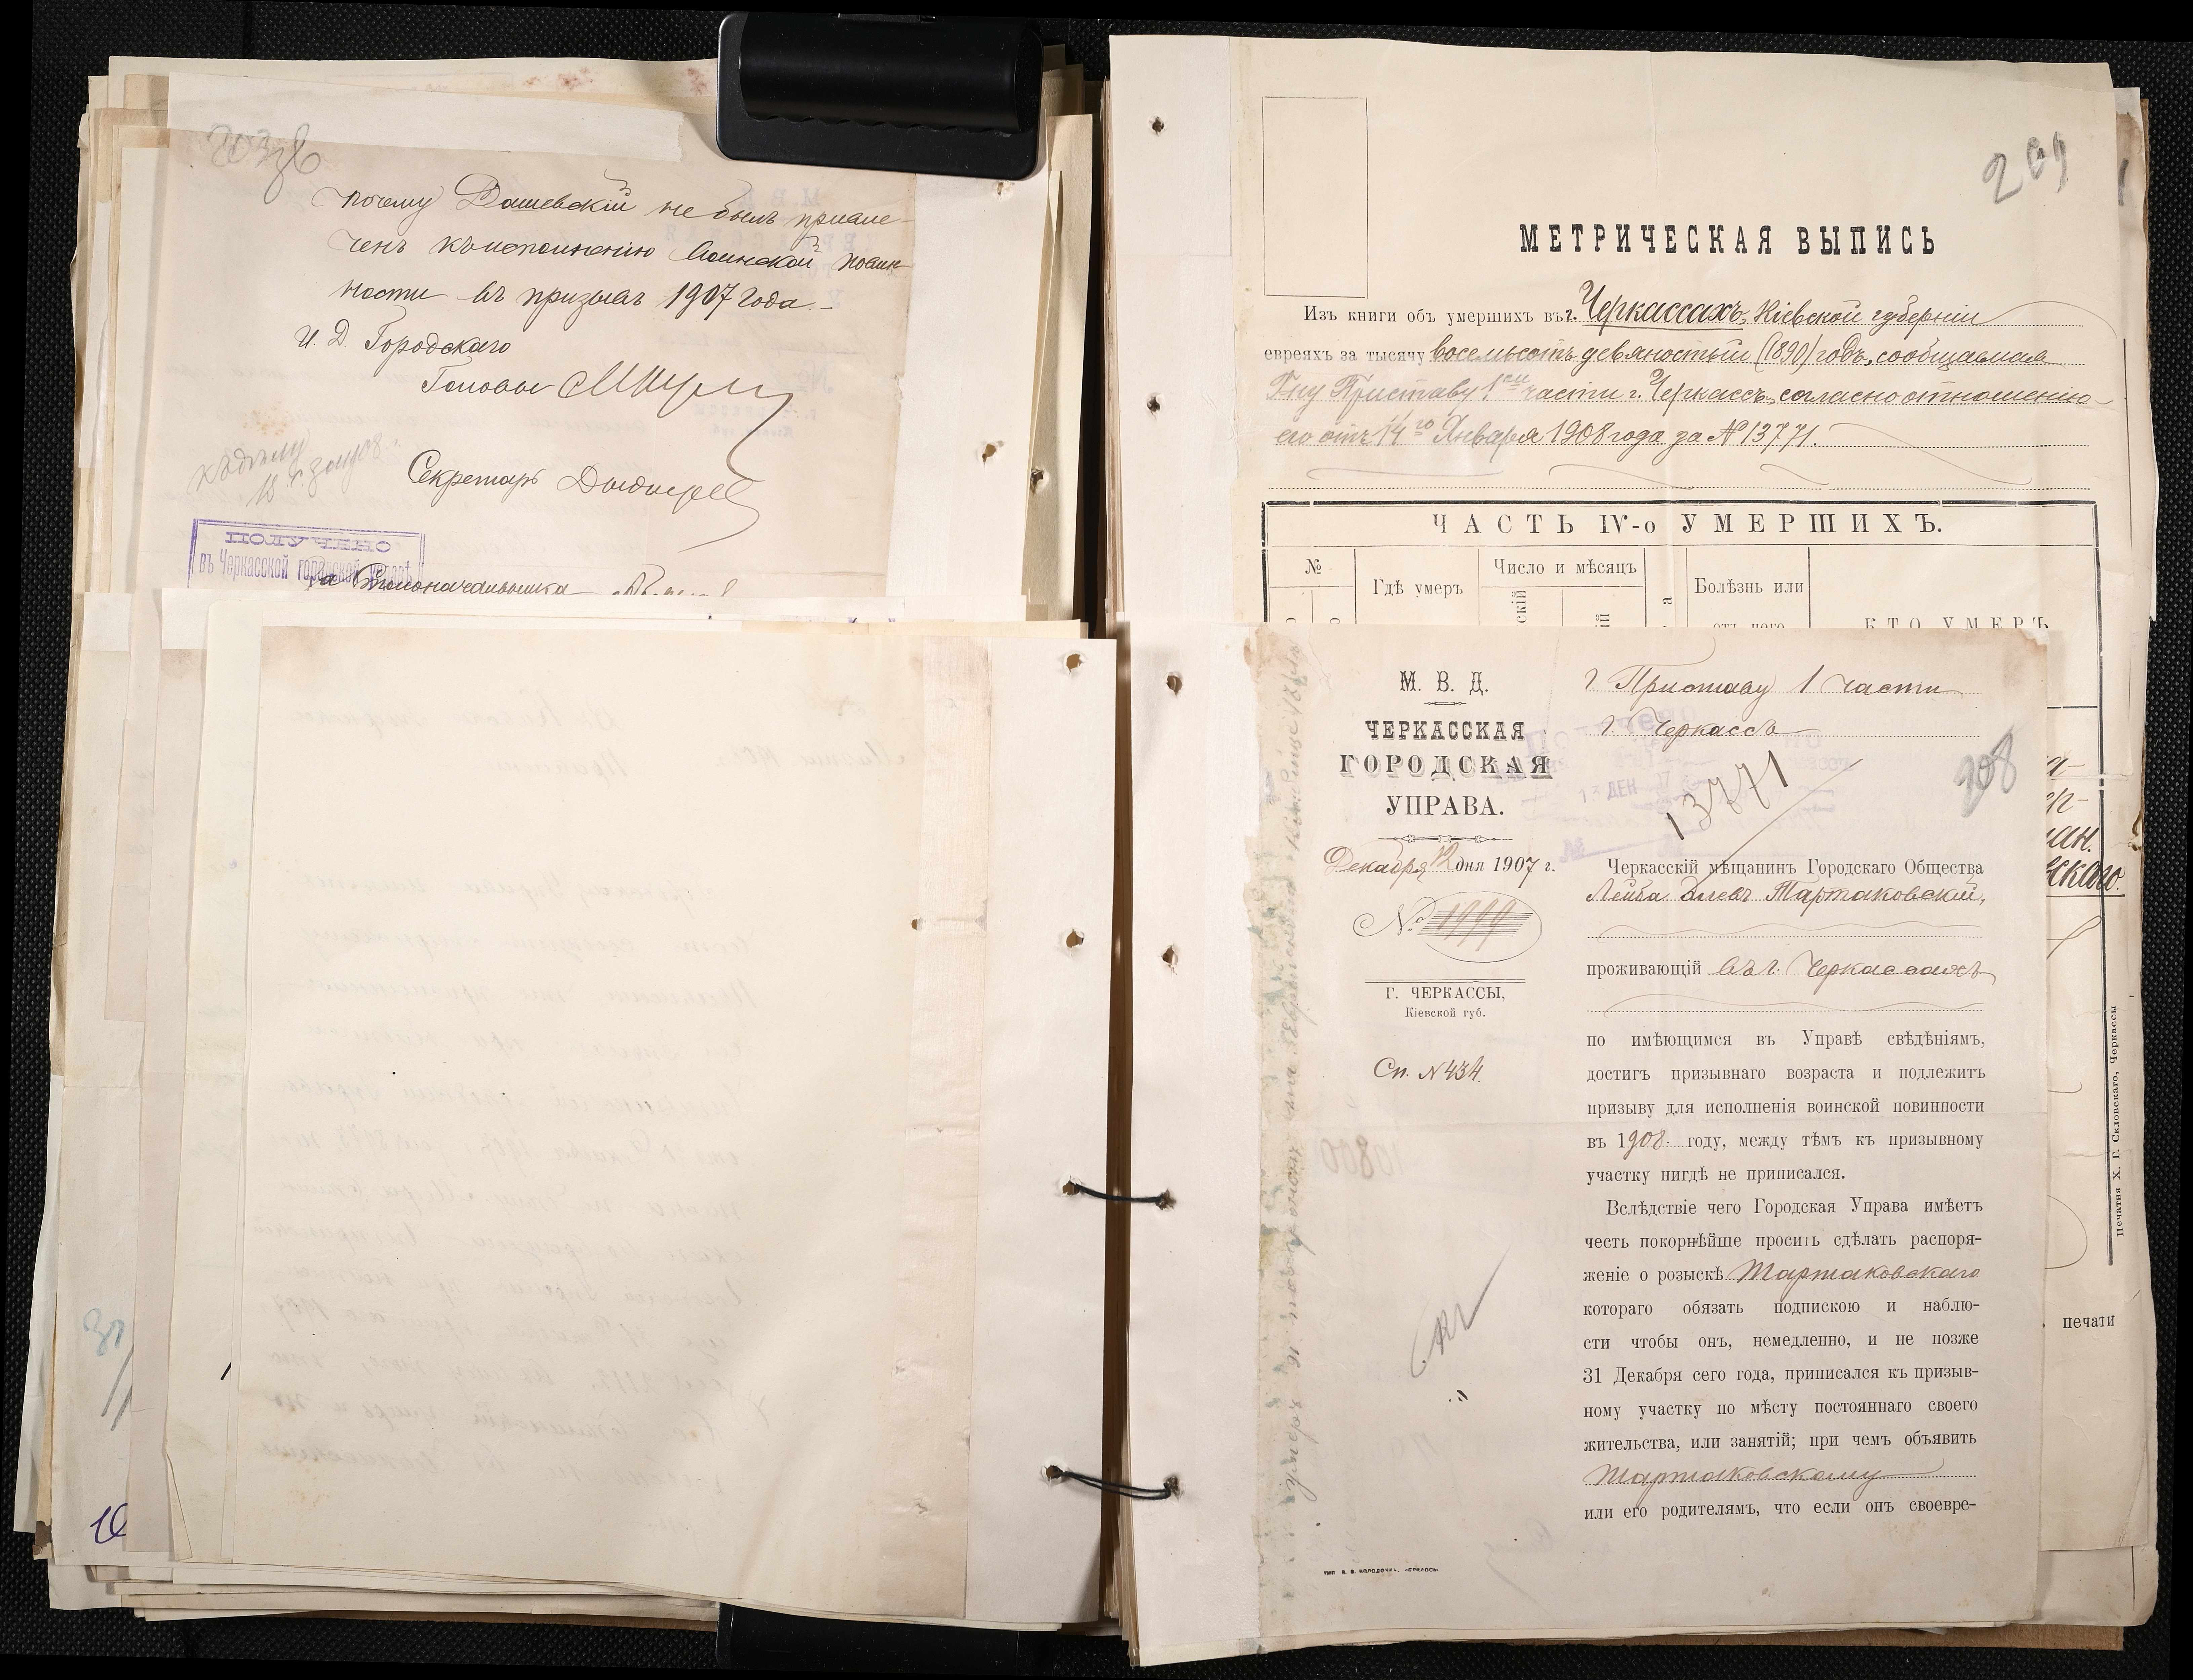 почему Дашевскій не былъ привле-
ченъ къ исполненію воинской повин-
ности въ призывъ 1907 года.-
И. Д. Городскаго
Головы
Секретарь
къ дѣлу
ПОЛУЧЕНО
въ Черкасской городской управѣ
за Столоначальника
10
209
МЕТРИЧЕСКАЯ ВЫПИСЬ
Изъ книги объ умершихъ въ г. Черкассахъ, Кіевской губерніи
евреяхъ за тысячу восемьсотъ девяностый (1890) годъ, сообщаемая
Г-ну Приставу 1-ой части г. Черкассъ, согласно отношенію
его отъ 14 го Января 1908 года за № 13771.
ЧАСТЬ IV-о УМЕРШИХЪ.
№
Гдѣ умеръ
Число и мѣсяцъ
Болѣзнь или
отъ чего
КТО УМЕРЪ
М. В. Д.
ЧЕРКАССКАЯ
ГОРОДСКАЯ
УПРАВА.
Декабря 12 дня 1907 г.
№ 1999
Г. ЧЕРКАССЫ,
Кіевской губ.
Сп. № 434.
Г Приставу 1 части
г. Черкассъ
13771
208
Черкасскій мѣщанинъ Городскаго Общества
Лейба Тартаковскій,
проживающій въ г. Черкассахъ
по имѣющимся въ Управѣ свѣдѣніямъ,
достигъ призывнаго возраста и подлежитъ
призыву для исполненія воинской повинности
въ 1908 году, между тѣмъ къ призывному
участку нигдѣ не приписался.
Вслѣдствіе чего Городская Управа имѣетъ
честь покорнѣйше просить сдѣлать распоря-
женіе о розыскѣ Тартаковскаго
котораго обязать подпискою и наблю-
сти чтобы онъ, немедленно, и не позже
31 Декабря сего года, приписался къ призыв-
ному участку по мѣсту постояннаго своего
жительства, или занятій; при чемъ объявить
Тартаковскому
или его родителямъ, что если онъ своевре-
печати
Печатня Х. Г. Скловскаго, Черкассы